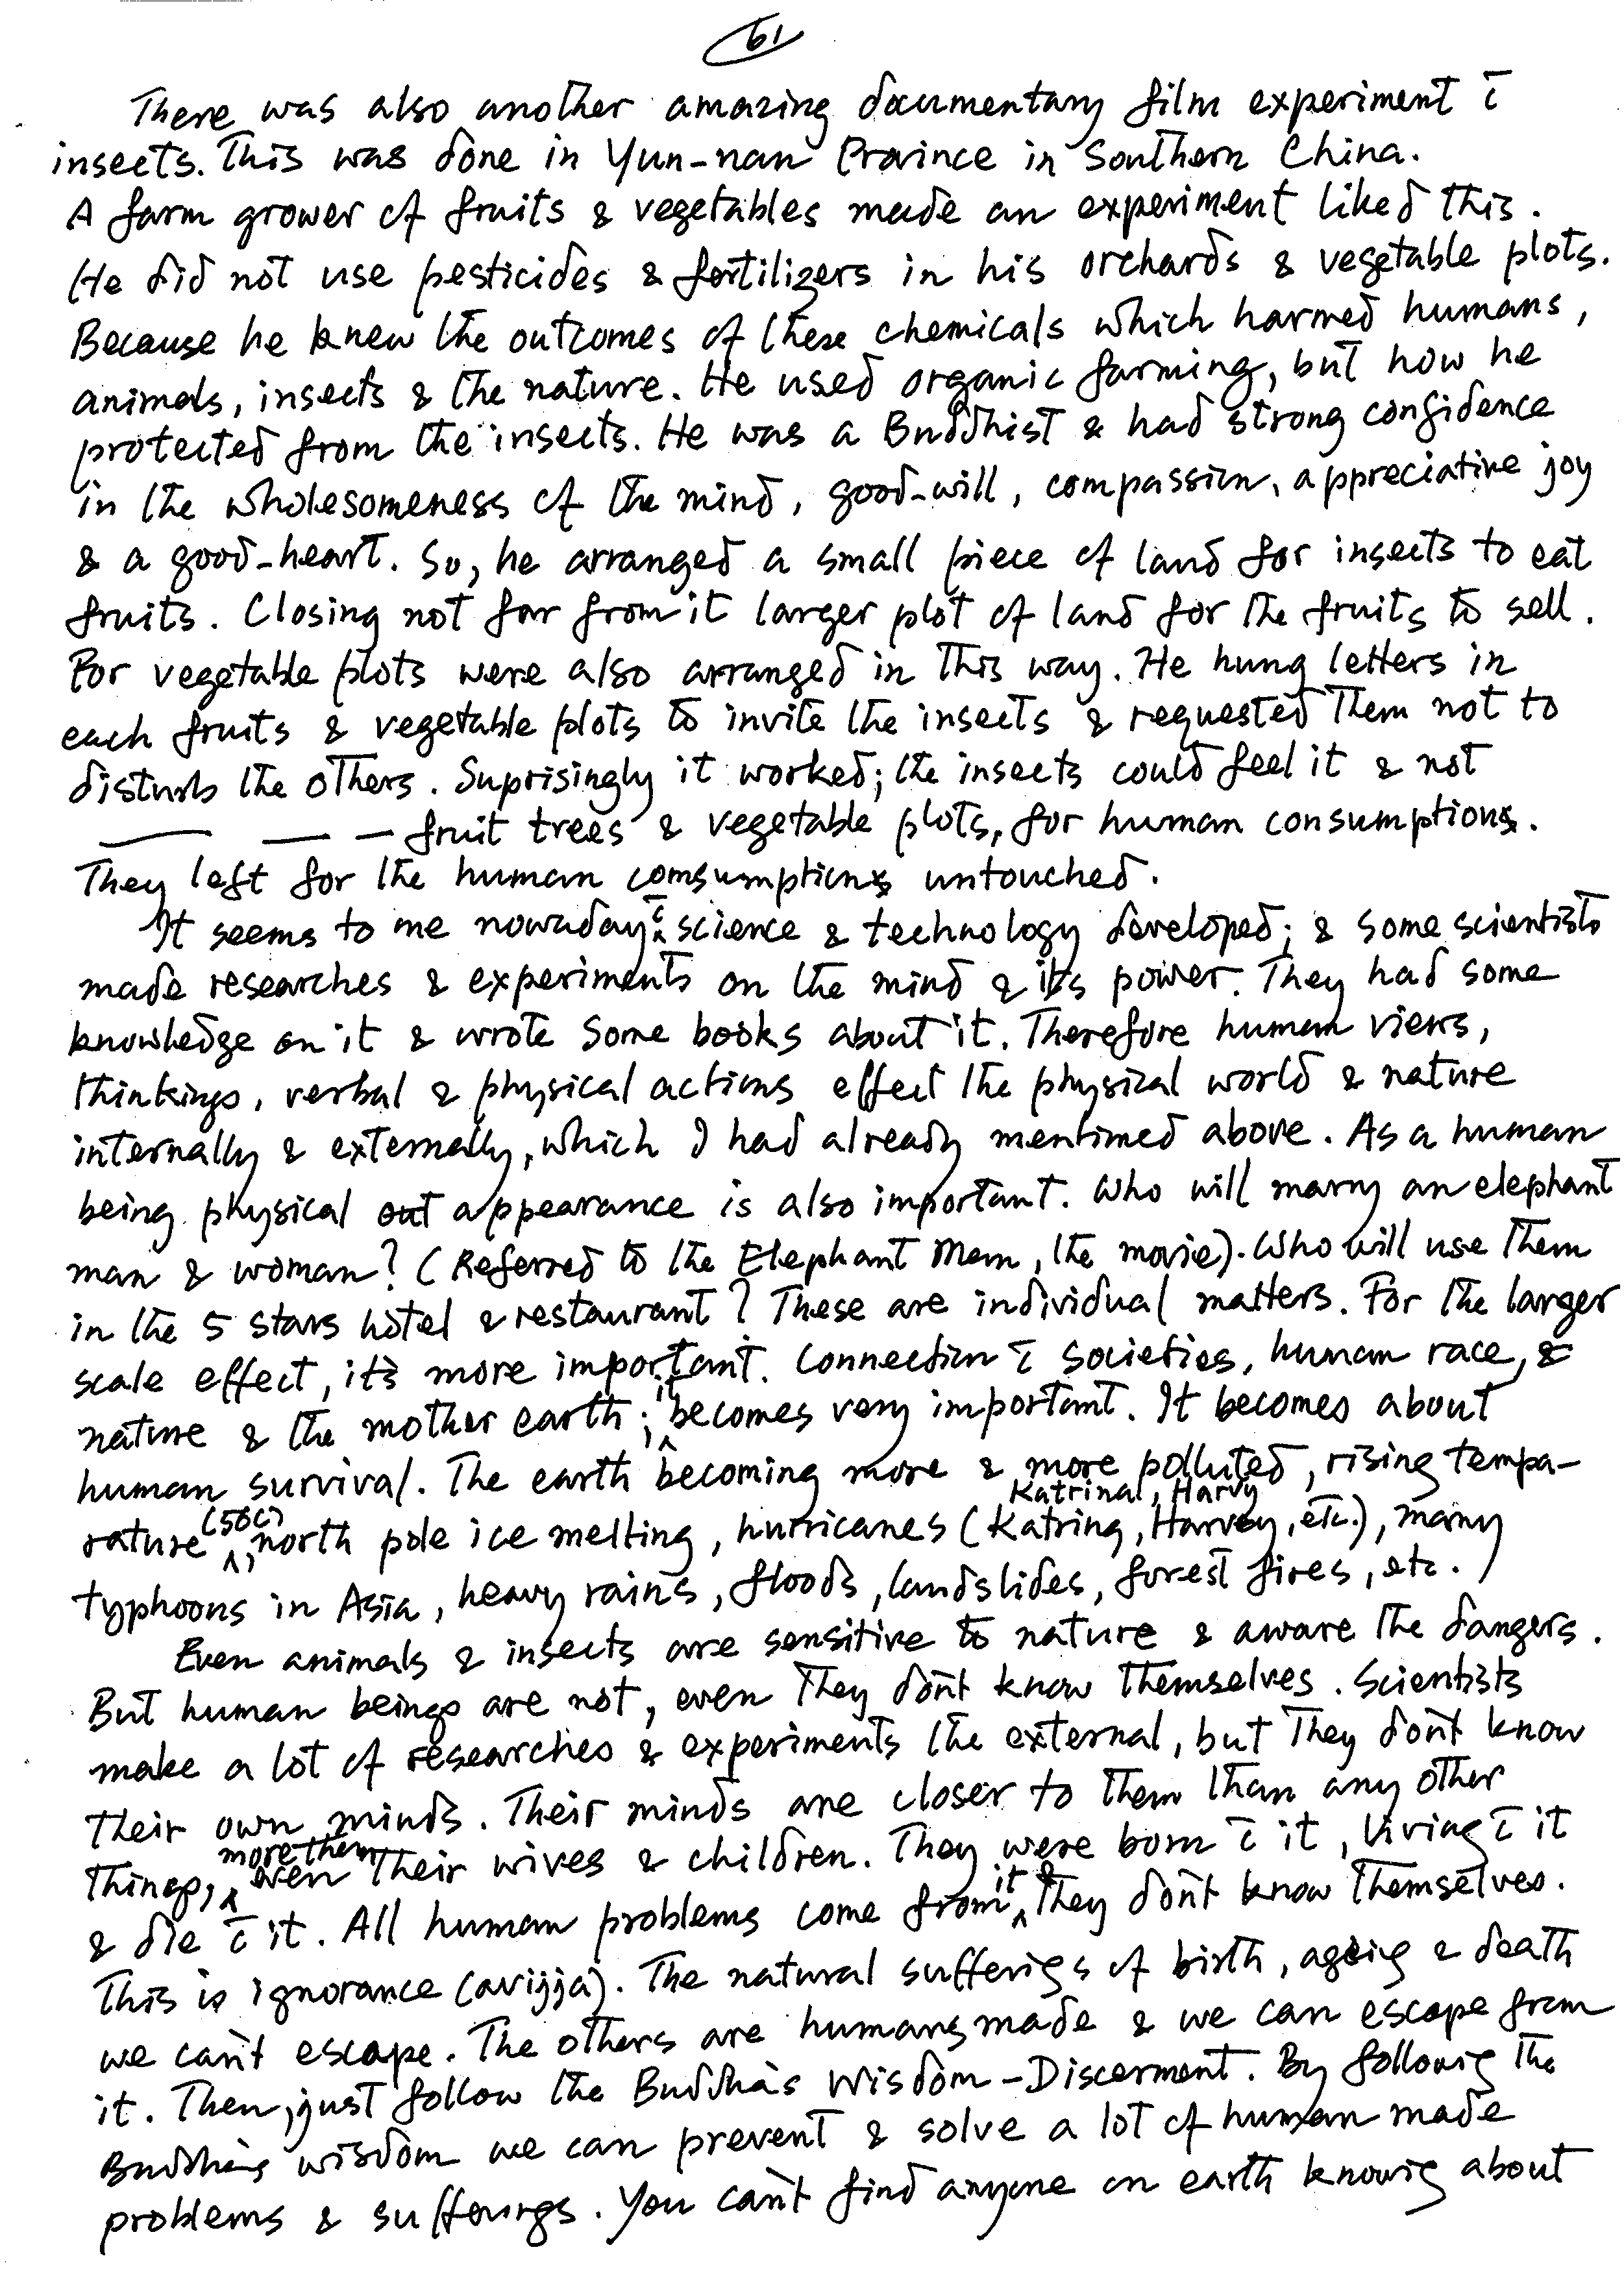 61
There was also another amazing documentary film experiment c̄
insects. This was done in Yun-nan Province in Southern China.
A farm grower of fruits & vegetables made an experiment liked this.
He did not use pesticides & fertilizers in his orchards & vegetable plots.
Because he knew the outcomes of these chemicals which harmed humans,
animals, insects & the nature. He used organic farming, but how he
protected from the insects. He was a Buddhist & had strong confidence
in the wholesomeness of the mind, good-will, compassion, appreciative joy
& a good-heart. So, he arranged a small piece of land for insects to eat
fruits. Closing not far from it larger plot of land for the fruits to sell.
For vegetable plots were also arranged in this way. He hung letters in
each fruits & vegetable plots to invite the insects & requested them not to
disturb the others. Suprisingly it worked; the insects could feel it & not
—— — — fruit trees & vegetable plots, for human consumptions.
They left for the human comsumptions untouched.
It seems to me nowaday c̄ science & technology developed; & some scientists
made researches & experiments on the mind & its power. They had some
knowledge on it & wrote some books about it. Therefore human views,
thinkings, verbal & physical actions effect the physical world & nature
internally & externally, which I had already mentioned above. As a human
being physical out appearance is also important. Who will marry an elephant
man & woman? (Referred to the Elephant Man, the movie). Who will use them
in the 5 stars hotel & restaurant? These are individual matters. For the larger
scale effect, it's more important. Connection c̄ societies, human race, &
nature & the mother earth; it becomes very important. It becomes about
human survival. The earth becoming more & more polluted, rising tempa-
Katrinal, Harvy
rature (50C), north pole ice melting, hurricanes (Katring, Harvey, etc.), many
typhoons in Asia, heavy rains, floods, landslides, forest fires, etc.
Even animals & insects are sensitive to nature & aware the dangers.
But human beings are not, even they don't know themselves. Scientists
make a lot of researches & experiments the external, but they don't know
their own minds. Their minds are closer to them than any other
things, more them even their wives & children. They were born c̄ it, living c̄ it
& die c̄ it. All human problems come from it & they don't know themselves.
This is ignorance (avijjā). The natural sufferigs of birth, ageig & death
we can't escape. The others are humans made & we can escape from
it. Then, just follow the Buddha's Wisdom-Discernment. By followig the
Buddha's wisdom we can prevent & solve a lot of human made
problems & sufferings. You can't find anyone on earth knowig about